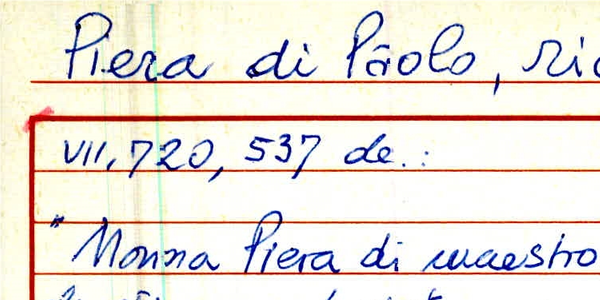 Piera di Paolo, ric
VII, 720, 537 de.:
"Monna Piera di maestro